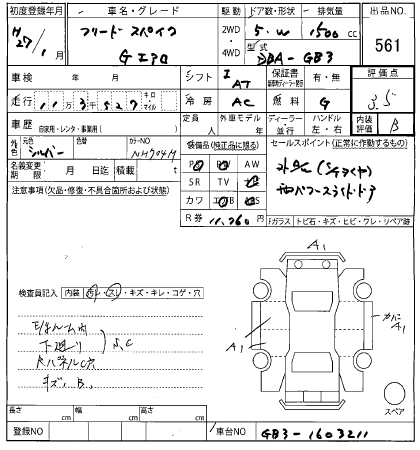 初度登録年月 車名・グレード 駆動 ドア数・形状 排気量 出品NO.
H27年1月 フリード スパイク 2WD・4WD 5.W 1500cc 561
G エアロ 型式 DBA-GB3
車検 年 月 シフト I AT 保証書 有・無 評価点
走行 11万3527 キロ マイル 冷房 AC 燃料 G 3.5
車歴 自家用・レンタ・事業用( ) 定員 人 外車モデル 年 ディーラー・並行 ハンドル 左・右 内装評価 B
外色 元色 シルバー 色替 カラーNO NH704M 装備品(純正品に限る) セールスポイント(正常に作動するもの)
名義変更期限 月 日迄 積載 t PS PW AW
注意事項(欠品・修復・不具合箇所および状態) SR TV
カワ
R券 11,260円 Fガラス トビ石・キズ・ヒビ・ワレ・リペア跡
A1
検査員記入 内装 汚レ・スレ・キズ・キレ・コゲ・穴
下廻り S,C
キズ、B、
A1
A1
スペア
長さ cm 幅 cm 高さ cm
登録NO 車台NO GB3-1603211